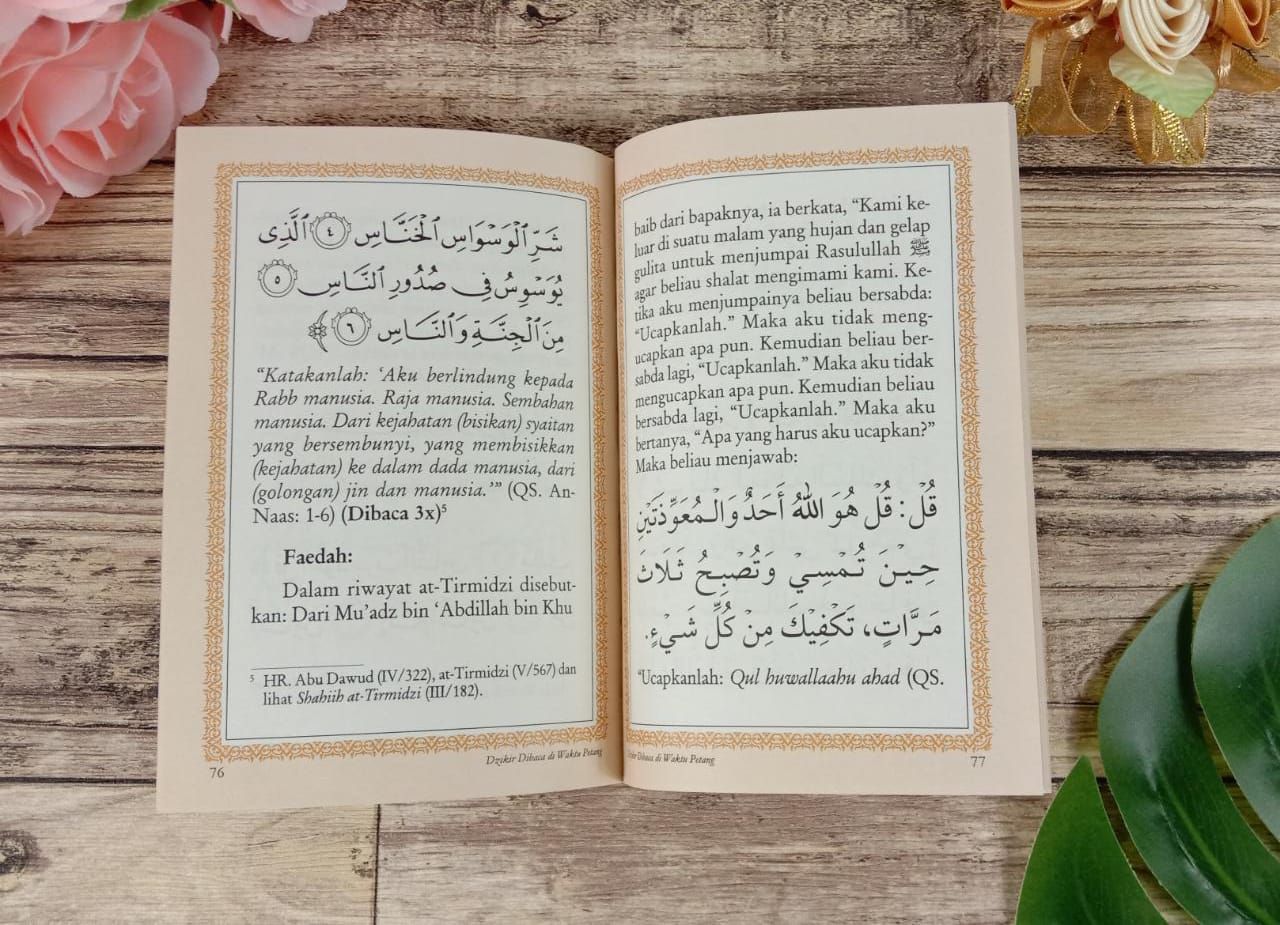 شَرِّ ٱلْوَسْوَاسِ ٱلْخَنَّاسِ ٤ ٱلَّذِى
يُوَسْوِسُ فِى صُدُورِ ٱلنَّاسِ ٥
مِنَ ٱلْجِنَّةِ وَٱلنَّاسِ ٦
“Katakanlah: ‘Aku berlindung kepada
Rabb manusia. Raja manusia. Sembahan
manusia. Dari kejahatan (bisikan) syaitan
yang bersembunyi, yang membisikkan
(kejahatan) ke dalam dada manusia, dari
(golongan) jin dan manusia.’” (QS. An-
Naas: 1-6) (Dibaca 3x)⁵
Faedah:
Dalam riwayat at-Tirmidzi disebut-
kan: Dari Mu’adz bin ‘Abdillah bin Khu
⁵ HR. Abu Dawud (IV/322), at-Tirmidzi (V/567) dan
lihat Shahiih at-Tirmidzi (III/182).
Dzikir Dibaca di Waktu Petang
76
baib dari bapaknya, ia berkata, “Kami ke-
luar di suatu malam yang hujan dan gelap
gulita untuk menjumpai Rasulullah ﷺ
agar beliau shalat mengimami kami. Ke-
tika aku menjumpainya beliau bersabda:
“Ucapkanlah.” Maka aku tidak meng-
ucapkan apa pun. Kemudian beliau ber-
sabda lagi, “Ucapkanlah.” Maka aku tidak
mengucapkan apa pun. Kemudian beliau
bersabda lagi, “Ucapkanlah.” Maka aku
bertanya, “Apa yang harus aku ucapkan?”
Maka beliau menjawab:
قُلْ: قُلْ هُوَ اللهُ أَحَدٌ وَالْمُعَوِّذَتَيْنِ
حِيْنَ تُمْسِيْ وَتُصْبِحُ ثَلَاثَ
مَرَّاتٍ، تَكْفِيْكَ مِنْ كُلِّ شَيْءٍ.
“Ucapkanlah: Qul huwallaahu ahad (QS.
Dzikir Dibaca di Waktu Petang
77